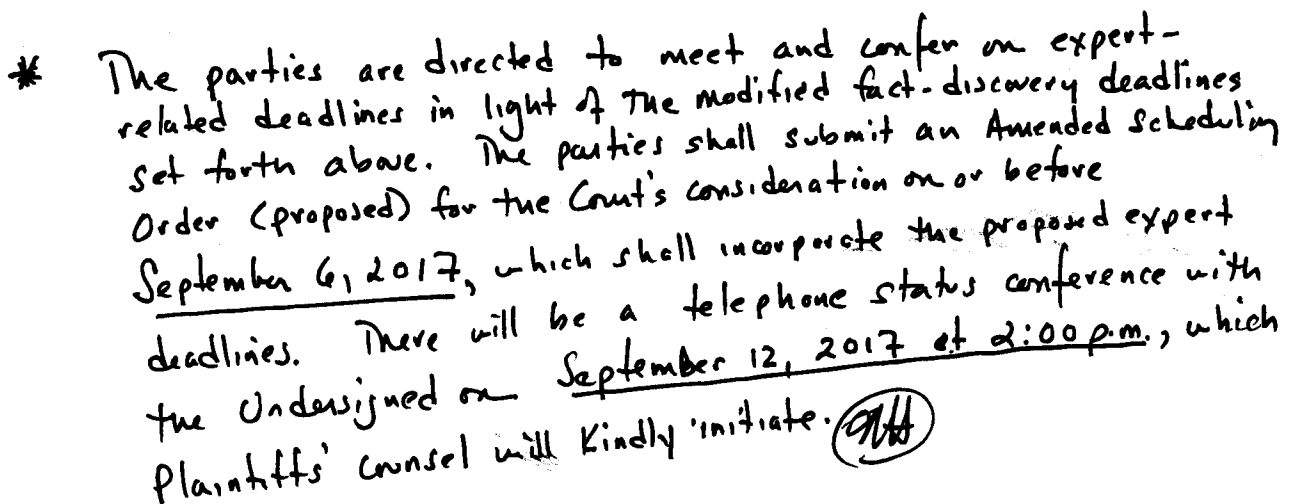 * The parties are directed to meet and confer on expert-
related deadlines in light of the modified fact-discovery deadlines
set forth above. The parties shall submit an Amended Scheduling
Order (proposed) for the Court's consideration on or before
September 6, 2017, which shall incorporate the proposed expert
deadlines. There will be a telephone status conference with
the Undersigned on September 12, 2017 at 2:00 p.m., which
Plaintiffs' counsel will kindly initiate.